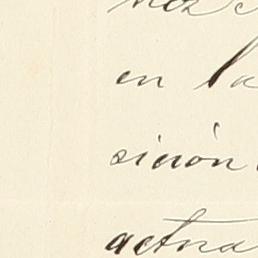 en la
sición
actua